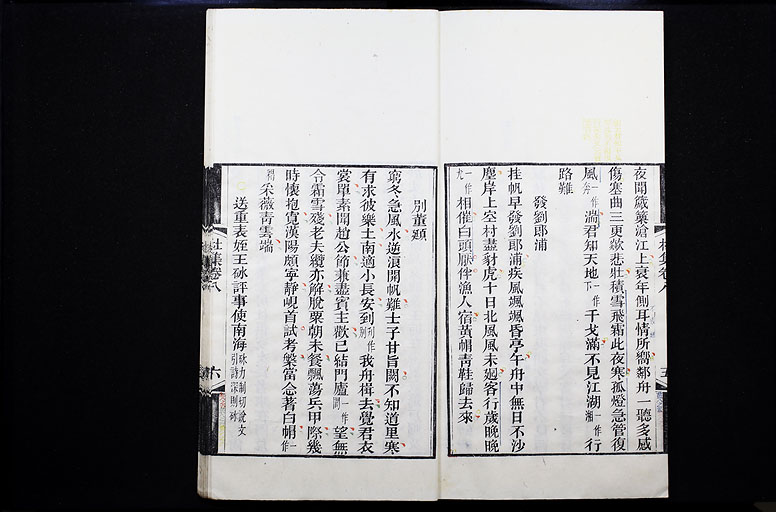 夜聞觱篥滄江上衰年側耳情所嚮鄰舟一聽多感
傷塞曲三更欻悲壯積雪飛霜此夜寒孤燈急管復
風一作奔湍君知天地一作下干戈滿不見江湖一作湘行
路難
發劉郎浦
挂帆早發劉郎浦疾風颯颯昏亭午舟中無日不沙
塵岸上空村盡豺虎十日北風風未迴客行歲晚晚
一作尤相催白頭厭伴漁人宿黃帽青鞋歸去來
別董頲
窮冬急風水逆浪開帆難士子甘旨闕不知道里寒
有求彼樂土南適小長安到一作別我舟楫去覺君衣
裳單素聞趙公節兼盡賓主歡已結門廬一作閭望無
令霜雪殘老夫纜亦解脫粟朝未餐飄蕩兵甲際幾
時懷抱寬漢陽頗寧靜峴首試考槃當念著白帽一作
褐采薇青雲端
送重表姪王砅評事使南海砅力制切說文引詩深則砅
杜集卷八
六